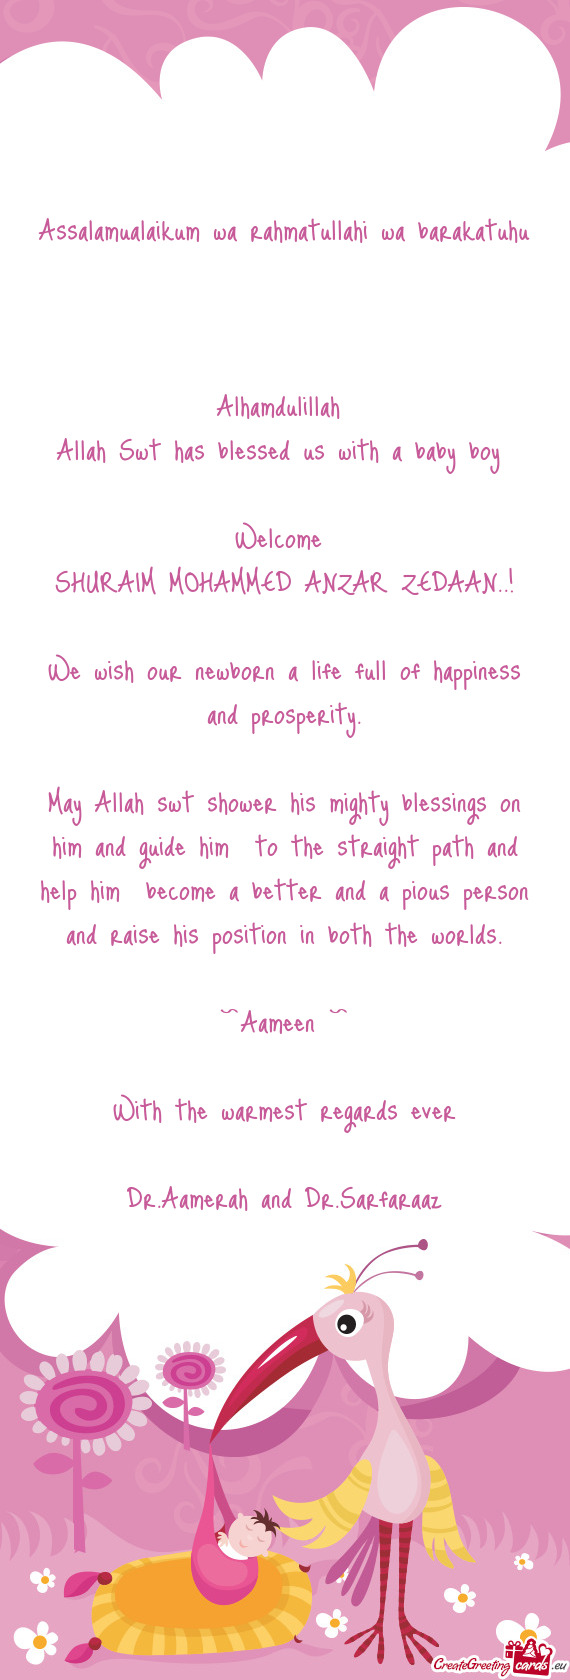 Assalamualaikum wa rahmatullahi wa barakatuhu
Alhamdulillah
Allah Swt has blessed us with a baby boy
Welcome
SHURAIM MOHAMMED ANZAR ZEDAAN..!
We wish our newborn a life full of happiness
and prosperity.
May Allah swt shower his mighty blessings on
him and guide him to the straight path and
help him become a better and a pious person
and raise his position in both the worlds.
~Aameen ~
With the warmest regards ever
Dr.Aamerah and Dr.Sarfaraaz
CreateGreeting cards .eu